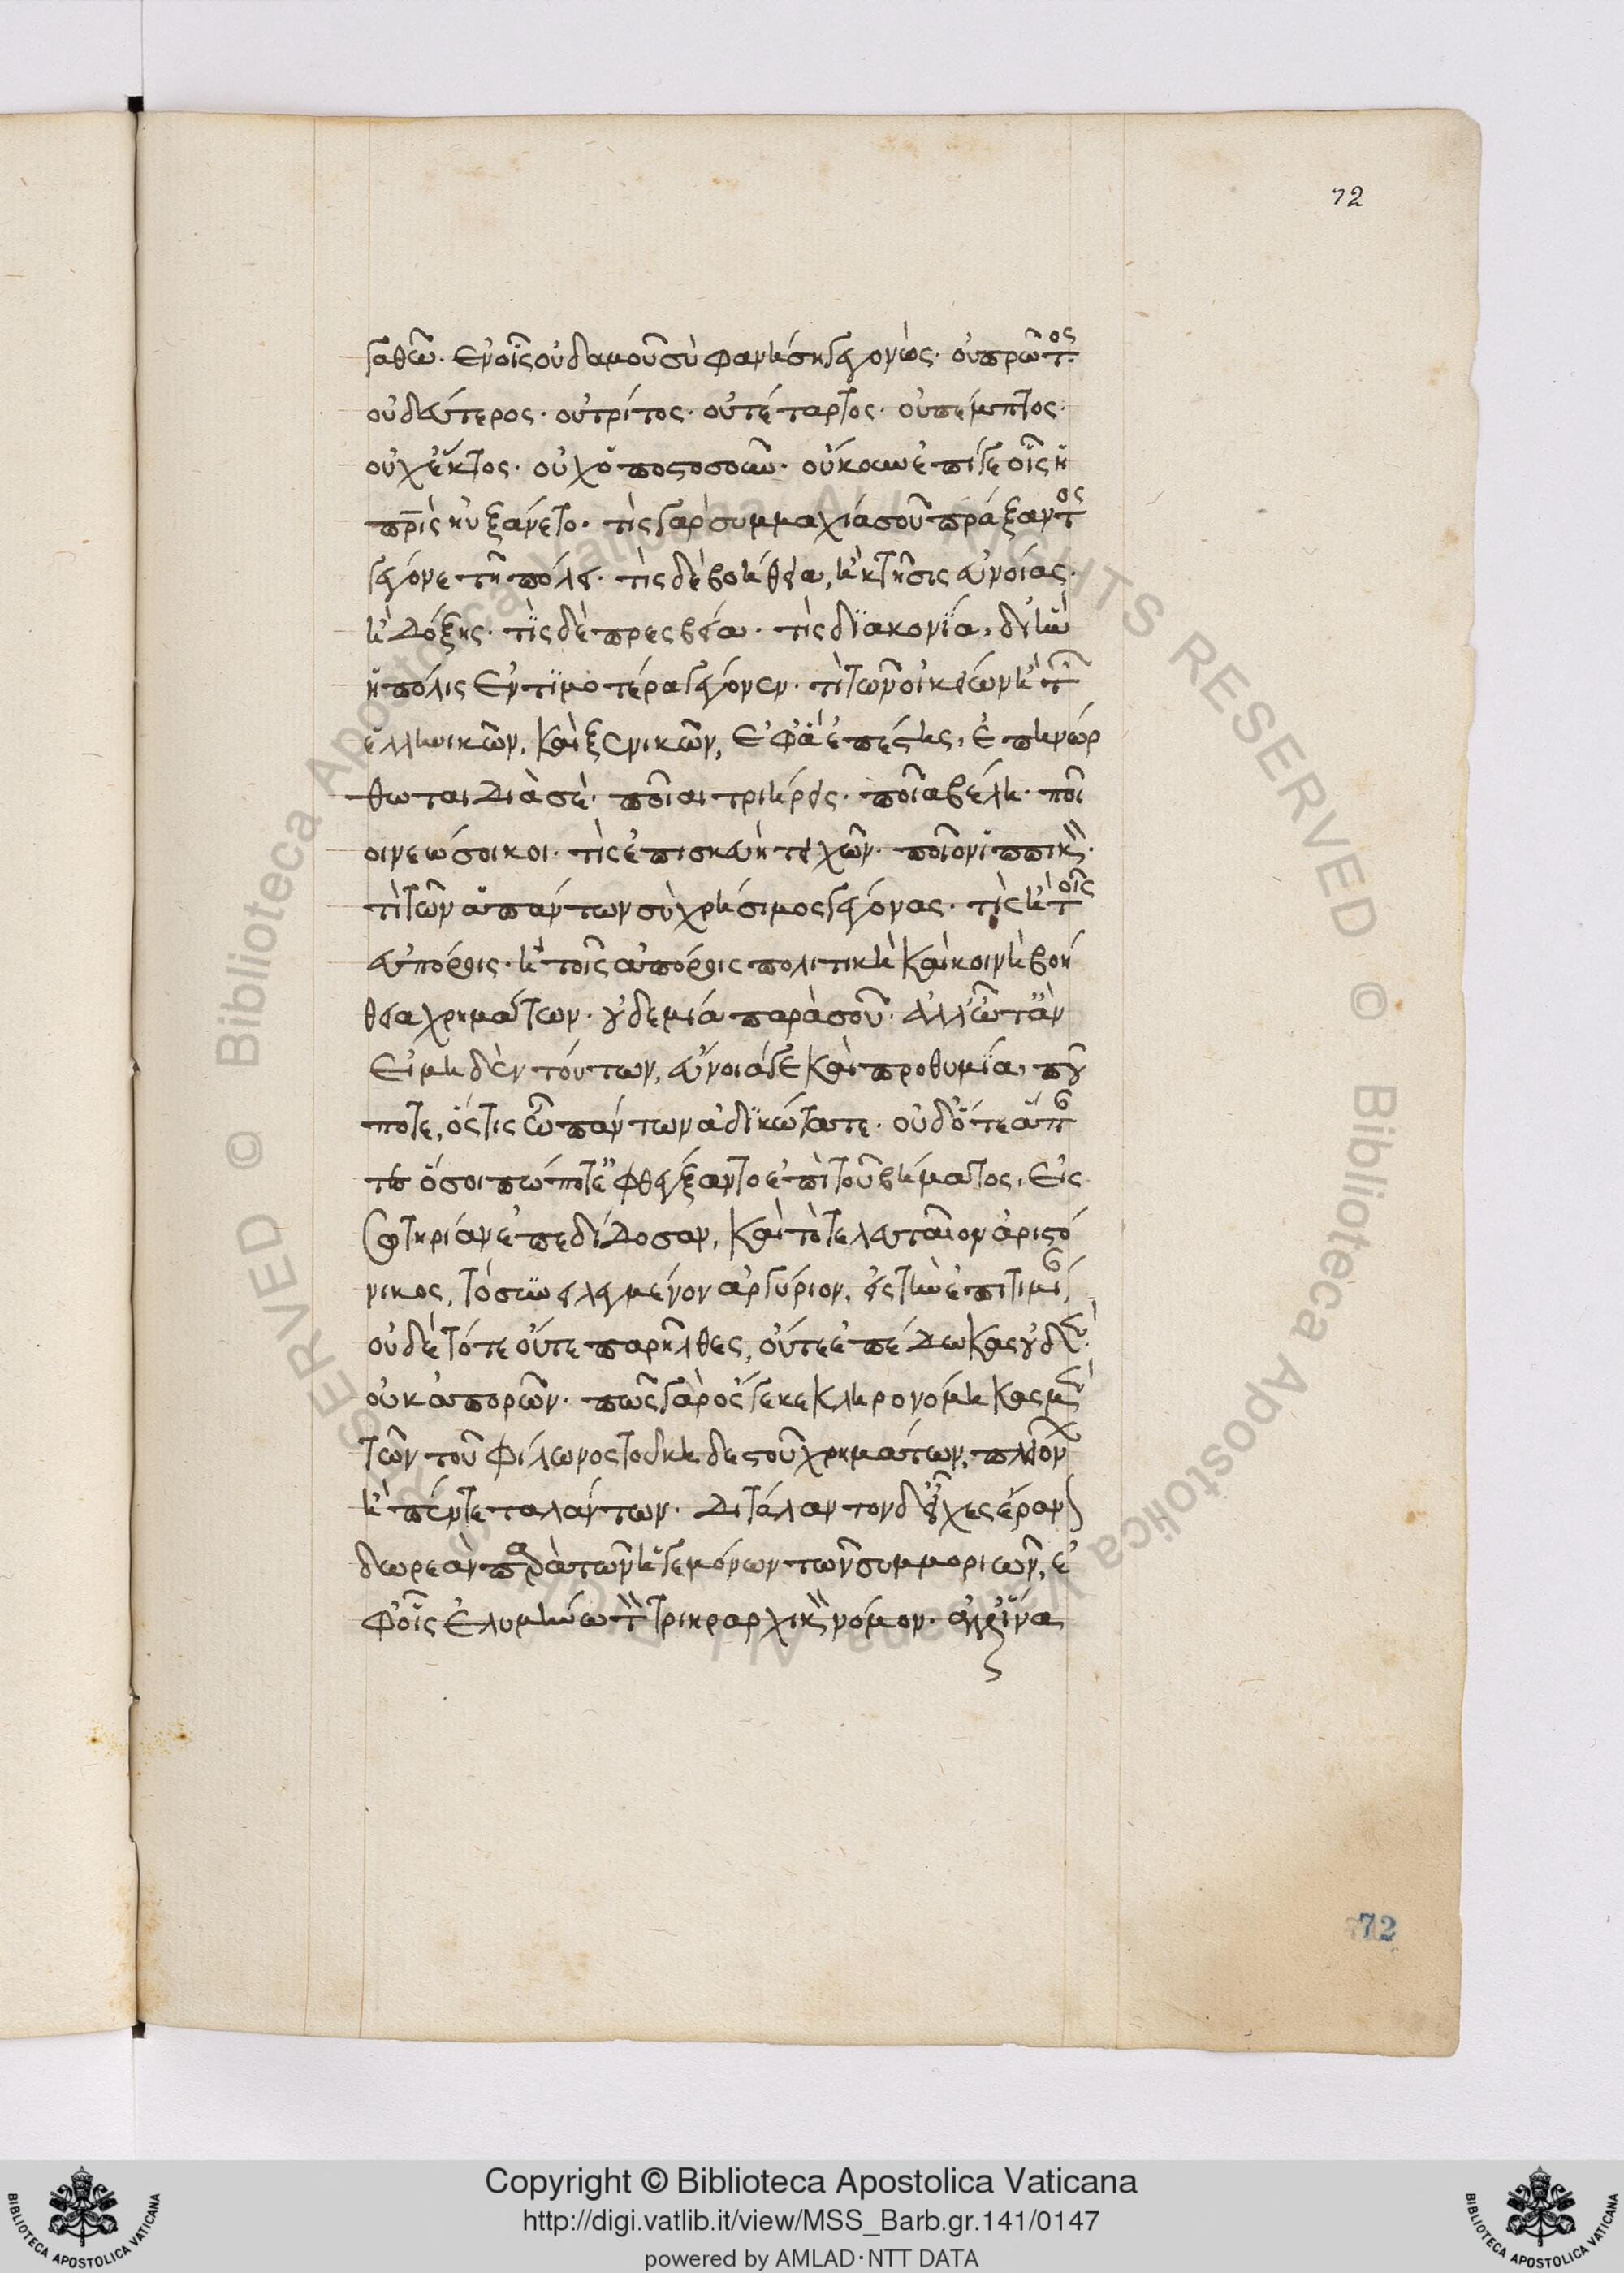 72
γαθῶν. ἐν οἷς οὐδαμοῦ σὺ φανήσῃ γεγονώς. οὐ πρῶτος
οὐ δεύτερος. οὐ τρίτος. οὐ τέταρτος. οὐ πέμπτος.
οὐχ ἕκτος. οὐχ ὁποστοσοῦν. οὔκουν ἐπί γε οἷς ἡ
πρὶς ηὐξάνετο. τίς γὰρ συμμαχία σοῦ πράξαντος
γέγονε τῇ πόλει. τίς δὲ βοήθεια, ἢ κτῆσις εὐνοίας.
ἢ δόξης. τίς δὲ πρεσβεία. τίς διακονία, δι' ἣν
ἡ πόλις ἐντιμοτέρα γέγονεν. τί τῶν οἰκείων ἢ τῶν
ἑλληνικῶν, καὶ ξενικῶν, ἐφ' ἃ ἐπέστης, ἐπηνώρ
θωται διὰ σέ. ποῖαι τριήρεις. ποῖα βέλη. ποῖ
οι νεώσοικοι. τίς ἐπισκευὴ τειχῶν. ποῖον ἱππικόν.
τί τῶν ἁπάντων σὺ χρήσιμος γέγονας. τίς ἢ τοῖς
εὐπόροις. ἢ τοῖς ἀπόροις πολιτικὴ καὶ κοινὴ βοή
θεια χρημάτων. οὐδεμία παρὰ σοῦ. ἀλλ' ὦ τὰν
εἰ μηδὲν τούτων, εὔνοιά γε καὶ προθυμία, ποῦ
πότε, ὅστις ὦ πάντων ἀδικώτατε. οὐδ' ὅτε ἅπαν
τες ὅσοι πώποτ' ἐφθέγξαντο ἐπὶ τοῦ βήματος, εἰς
σωτηρίαν ἐπεδίδοσαν, καὶ τὸ τελευταῖον ἀριστό
νικος, τὸ συνειλεγμένον ἀργύριον, εἰς τὴν ἐπιτιμίαν
οὐδὲ τότε οὔτε παρῆλθες, οὔτε ἐπέδωκας οὐδέν.
οὐκ ἀπορῶν. πῶς γὰρ ὅς γε κεκληρονόμηκας μὲν
τῶν τοῦ φίλωνος τοῦ κηδεστοῦ χρημάτων, πλειόνων
ἢ πέντε ταλάντων. διτάλαντον δ' εἶχες ἔραν
δωρεὰν παρὰ τῶν ἡγεμόνων τῶν συμμοριῶν, ἐ
φ' οἷς ἐλυμήνω τὸν τριηραρχικὸν νόμον. ἀλλ' ἵνα
72
Copyright © Biblioteca Apostolica Vaticana
http://digi.vatlib.it/view/MSS_Barb.gr.141/0147
powered by AMLAD·NTT DATA